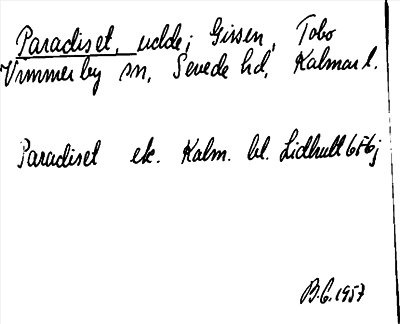 Paradiset, udde; Gissen, Tobo
Vimmerby sn, Sevede hd, Kalmar l.
Paradiset ek. Kalm. bl. Lidhult 6f6j
B.G. 1957